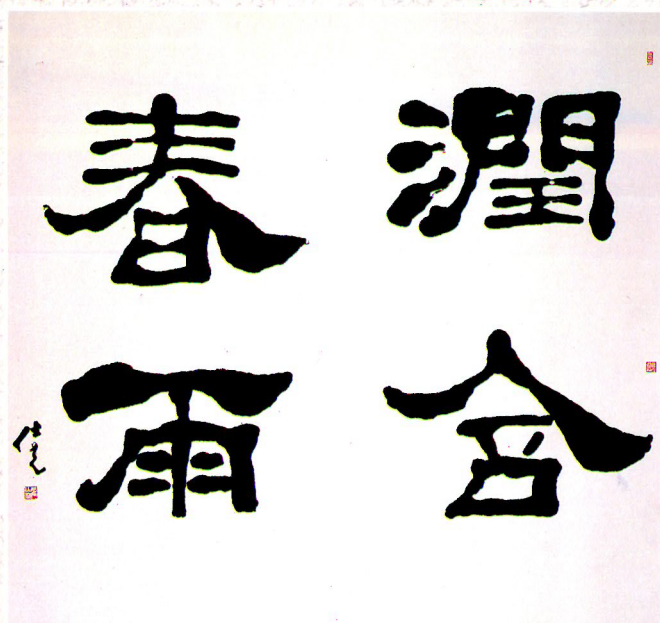 潤含
春雨